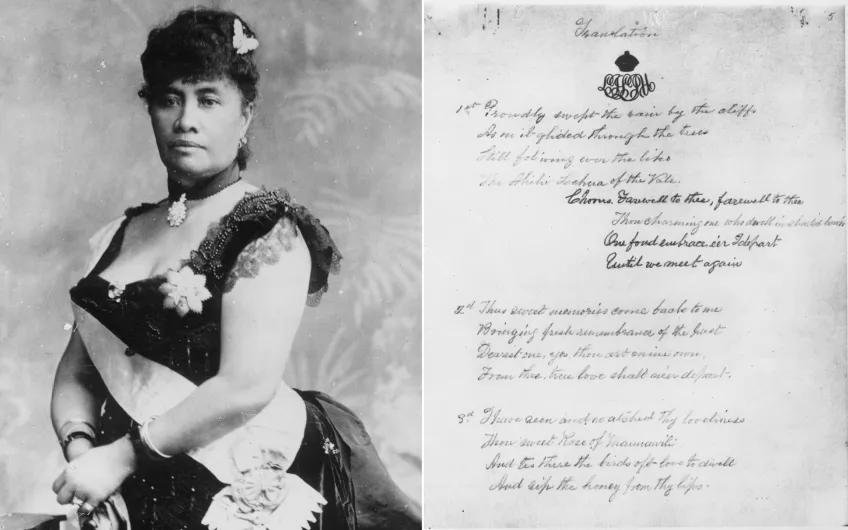 5
Translation
1st Proudly swept the rain by the cliffs
As on it glided through the trees
Still following ever the liko
The Ahihi Lehua of the Vale.
Chorus. Farewell to thee, farewell to thee
Thou charming one who dwell in shaded bowers
One fond embrace e'er I depart
Until we meet again
2d Thus sweet memories come back to me
Bringing fresh remembrance of the past
Dearest one, yes, thou art mine own,
From thee, true love shall ne'er depart.
3d I have seen and watched thy loveliness
Thou sweet Rose of Maunawili
And tis there the birds oft love to dwell
And sip the honey from thy lips.